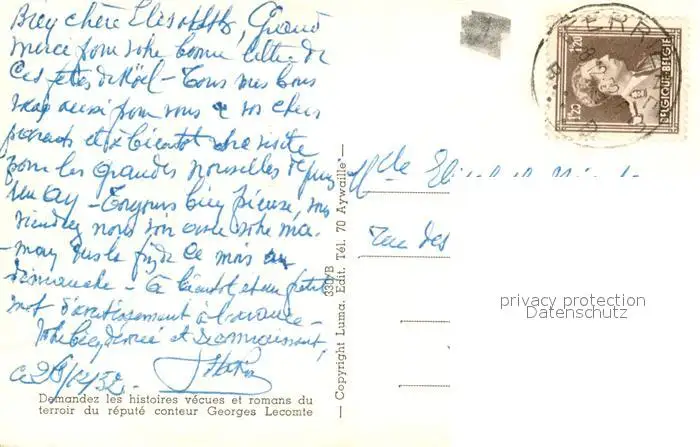 Bien chère Elisabeth, Grand
merci pour votre bonne lettre de
ces fêtes de Noël - Tous mes bons
vœux aussi pour vous & vos chers
parents et à bientôt votre visite
pour les grandes nouvelles depuis
un an - Toujours bien pieuse, vous
viendrez nous voir avec votre ma-
-man vers la fin de ce mois un
dimanche - À bientôt et un petit
mot d'avertissement à l'avance -
Votre bien dévoué et reconnaissant,
ce 28/12/52 -
Demandez les histoires vécues et romans du
terroir du réputé conteur Georges Lecomte
— Copyright Luma. Edit. Tél. 70 Aywaille —
330/B
1F20
1F20
BELGIQUE-BELGIË
Mlle
rue des
privacy protection
Datenschutz